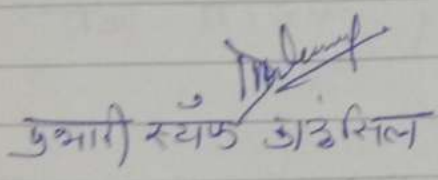 प्रभारी स्टॉफ काउंसिल